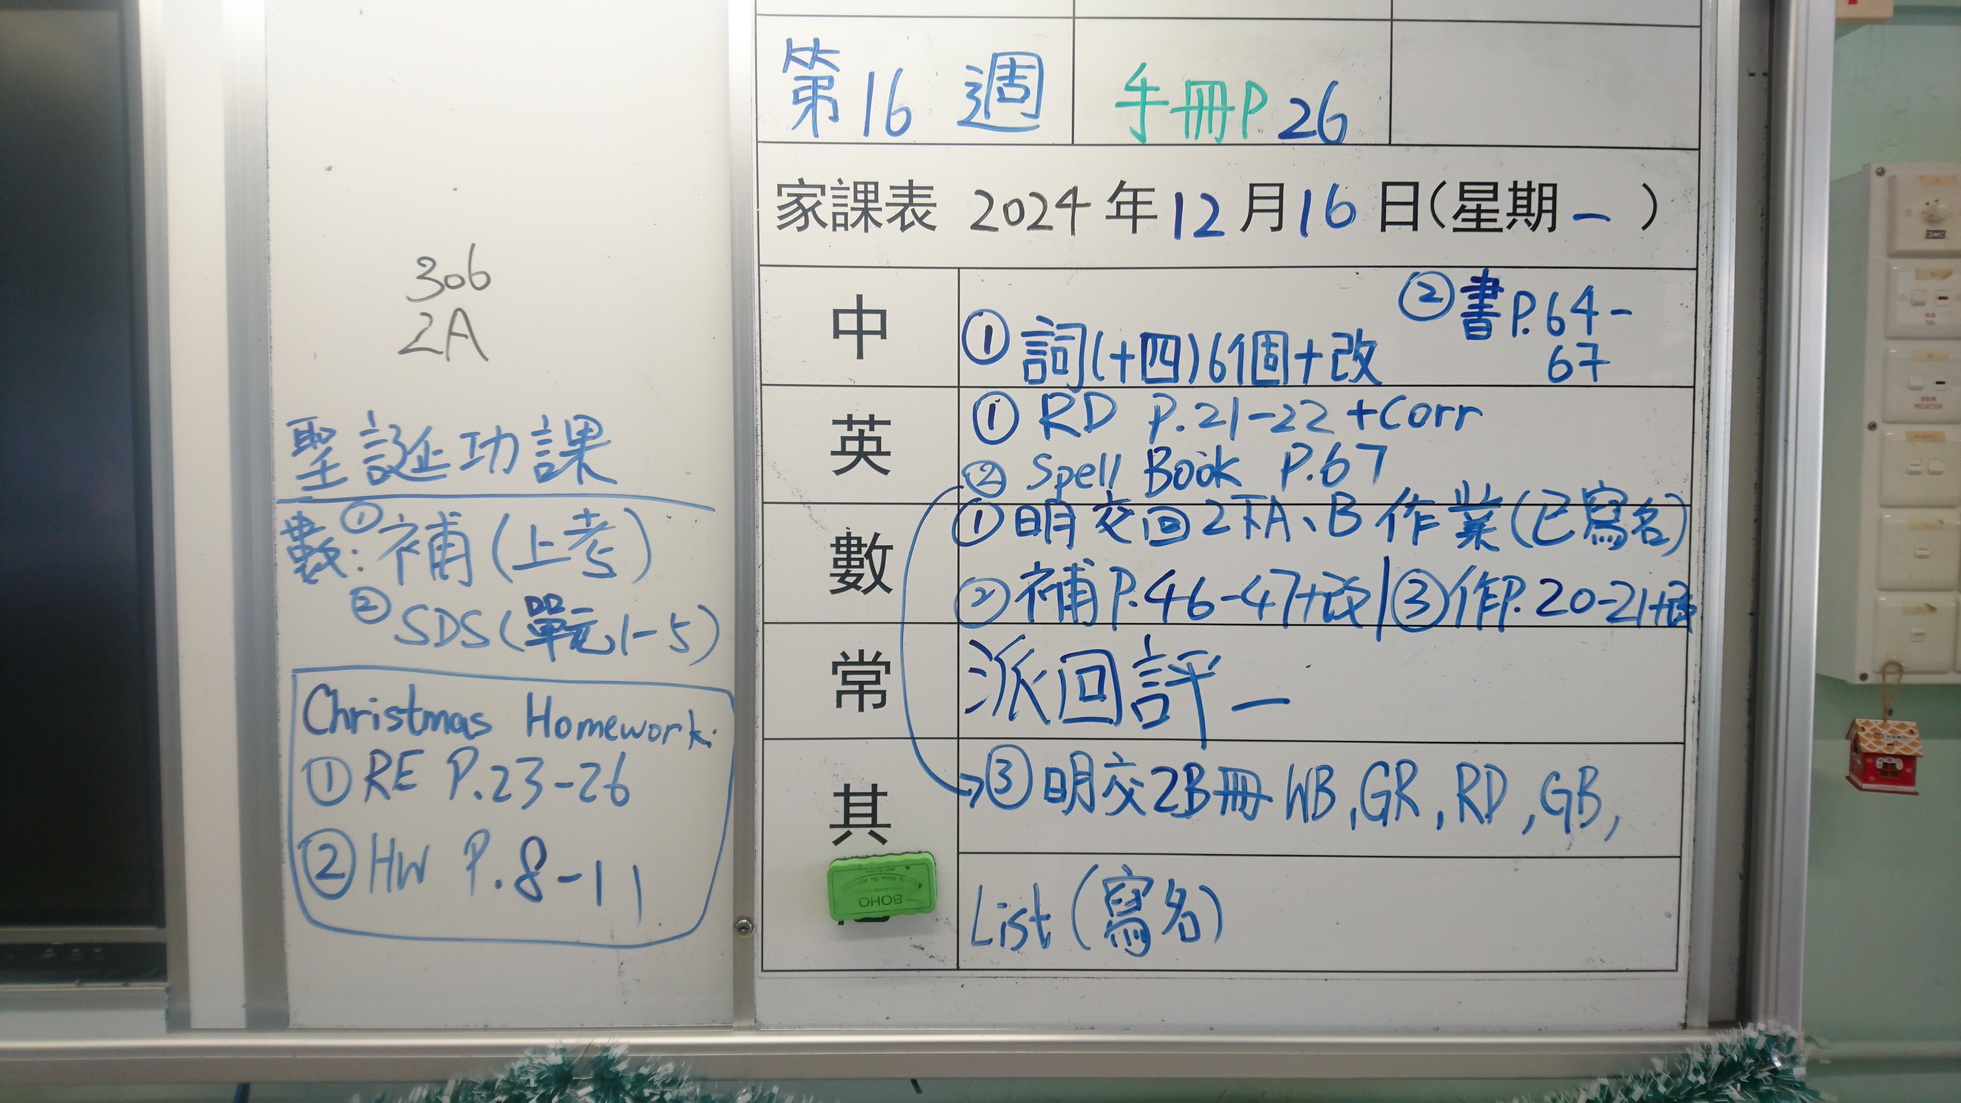 306
2A
聖誕功課
數:①補(上考)
②SDS(單元1-5)
Christmas Homework:
①RE P.23-26
②HW P.8-11
第16週 手冊P.26
家課表 2024年12月16日(星期一)
中 ①詞(十四)6個+改 ②書P.64-
67
英 ①RD P.21-22+Corr
②Spell Book P.67
數 ①明交回2下A、B作業(已寫名)
②補P.46-47+改|③作P.20-21+改
常 派回評一
其 ③明交2B冊WB,GR,RD,GB,
List(寫名)
BOHO